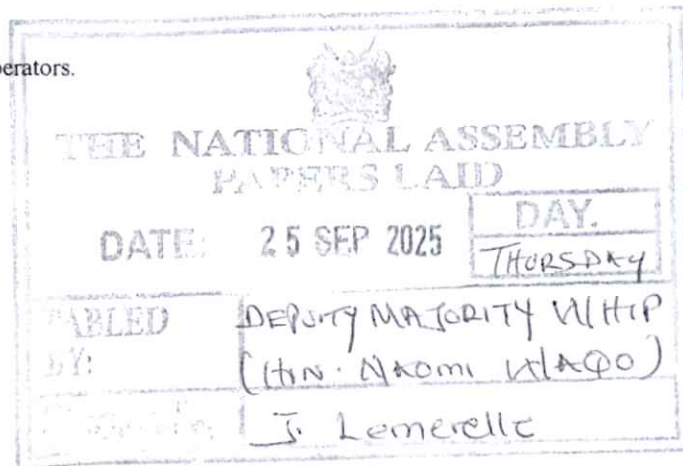 perators.
THE NATIONAL ASSEMBLY
PAPERS LAID
DATE: 25 SEP 2025
DAY.
THURSDAY
TABLED BY:
DEPUTY MAJORITY WHIP
(HON. NAOMI WAQO)
J. Lemerelle